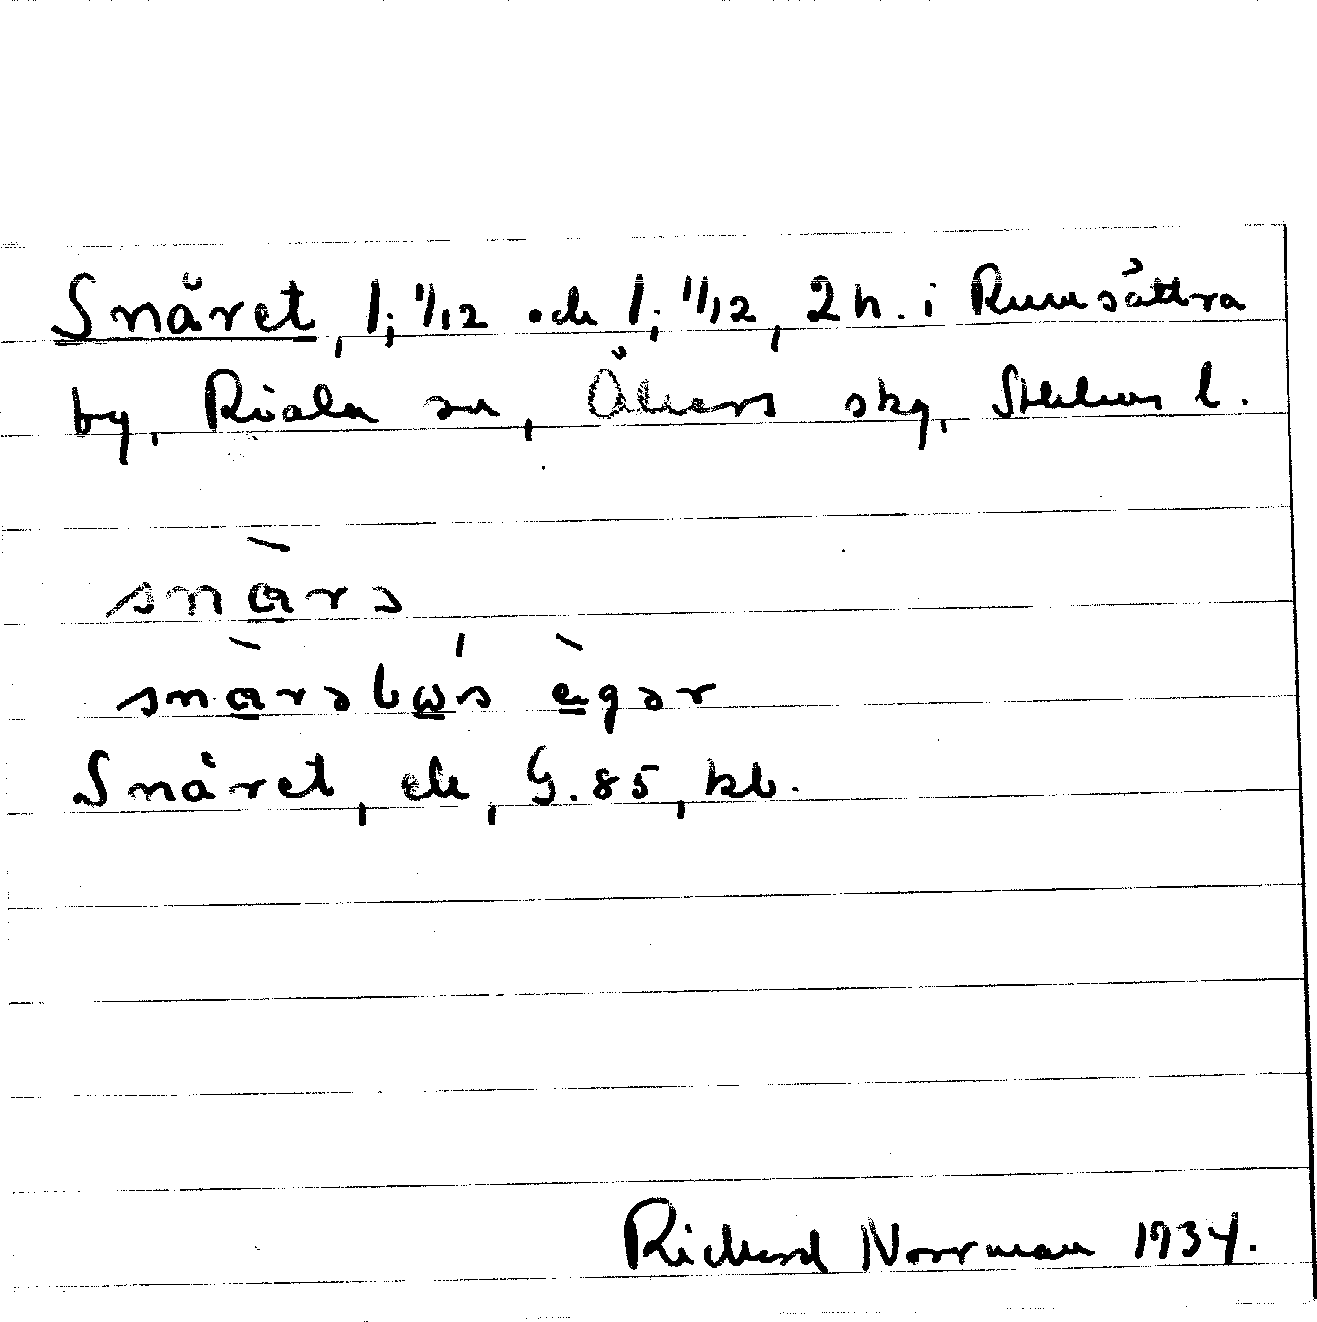 Snäret, 1; 1/12 och 1; 1/12, 2 h. i Rumsättra
by, Riala sn, Åkers skg, Sthlms l.
snà̱rə
snà̱rəbώ̱s è̱gər
Snäret, ek, G. 85, kb.
Richard Norrman 1934.